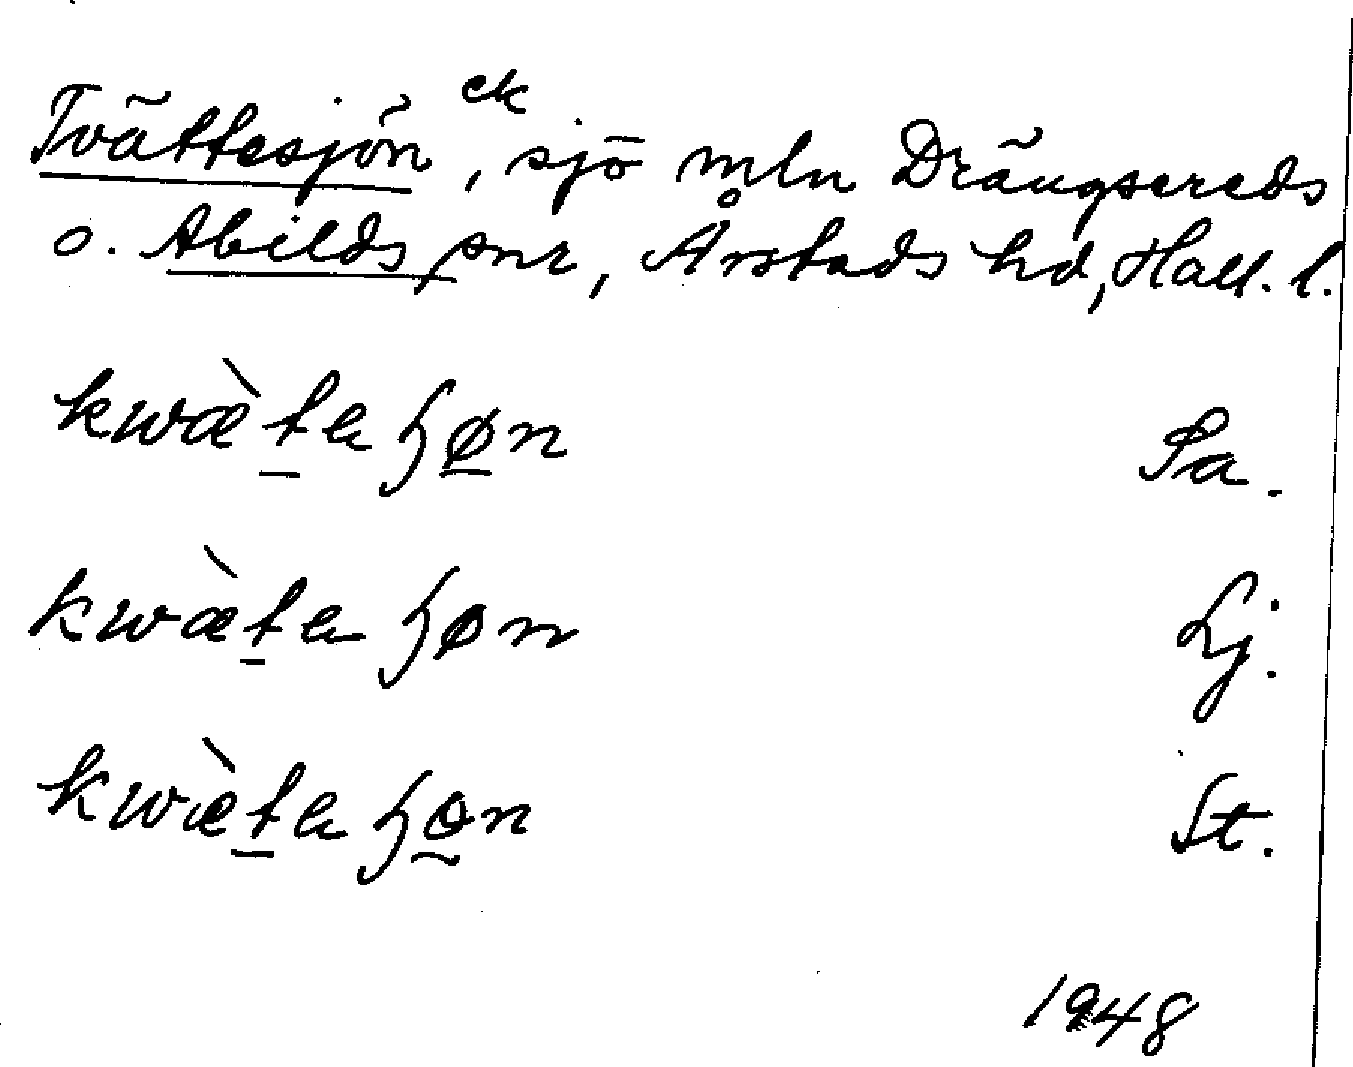 Tvättesjön ek, sjö mln Drängsereds
o. Abilds snr, Årstads hd, Hall. l.
kwæ̀te ɧøn Sa.
kwæ̀te ɧøn Lj.
kwæ̀te ɧɵn St.
1948